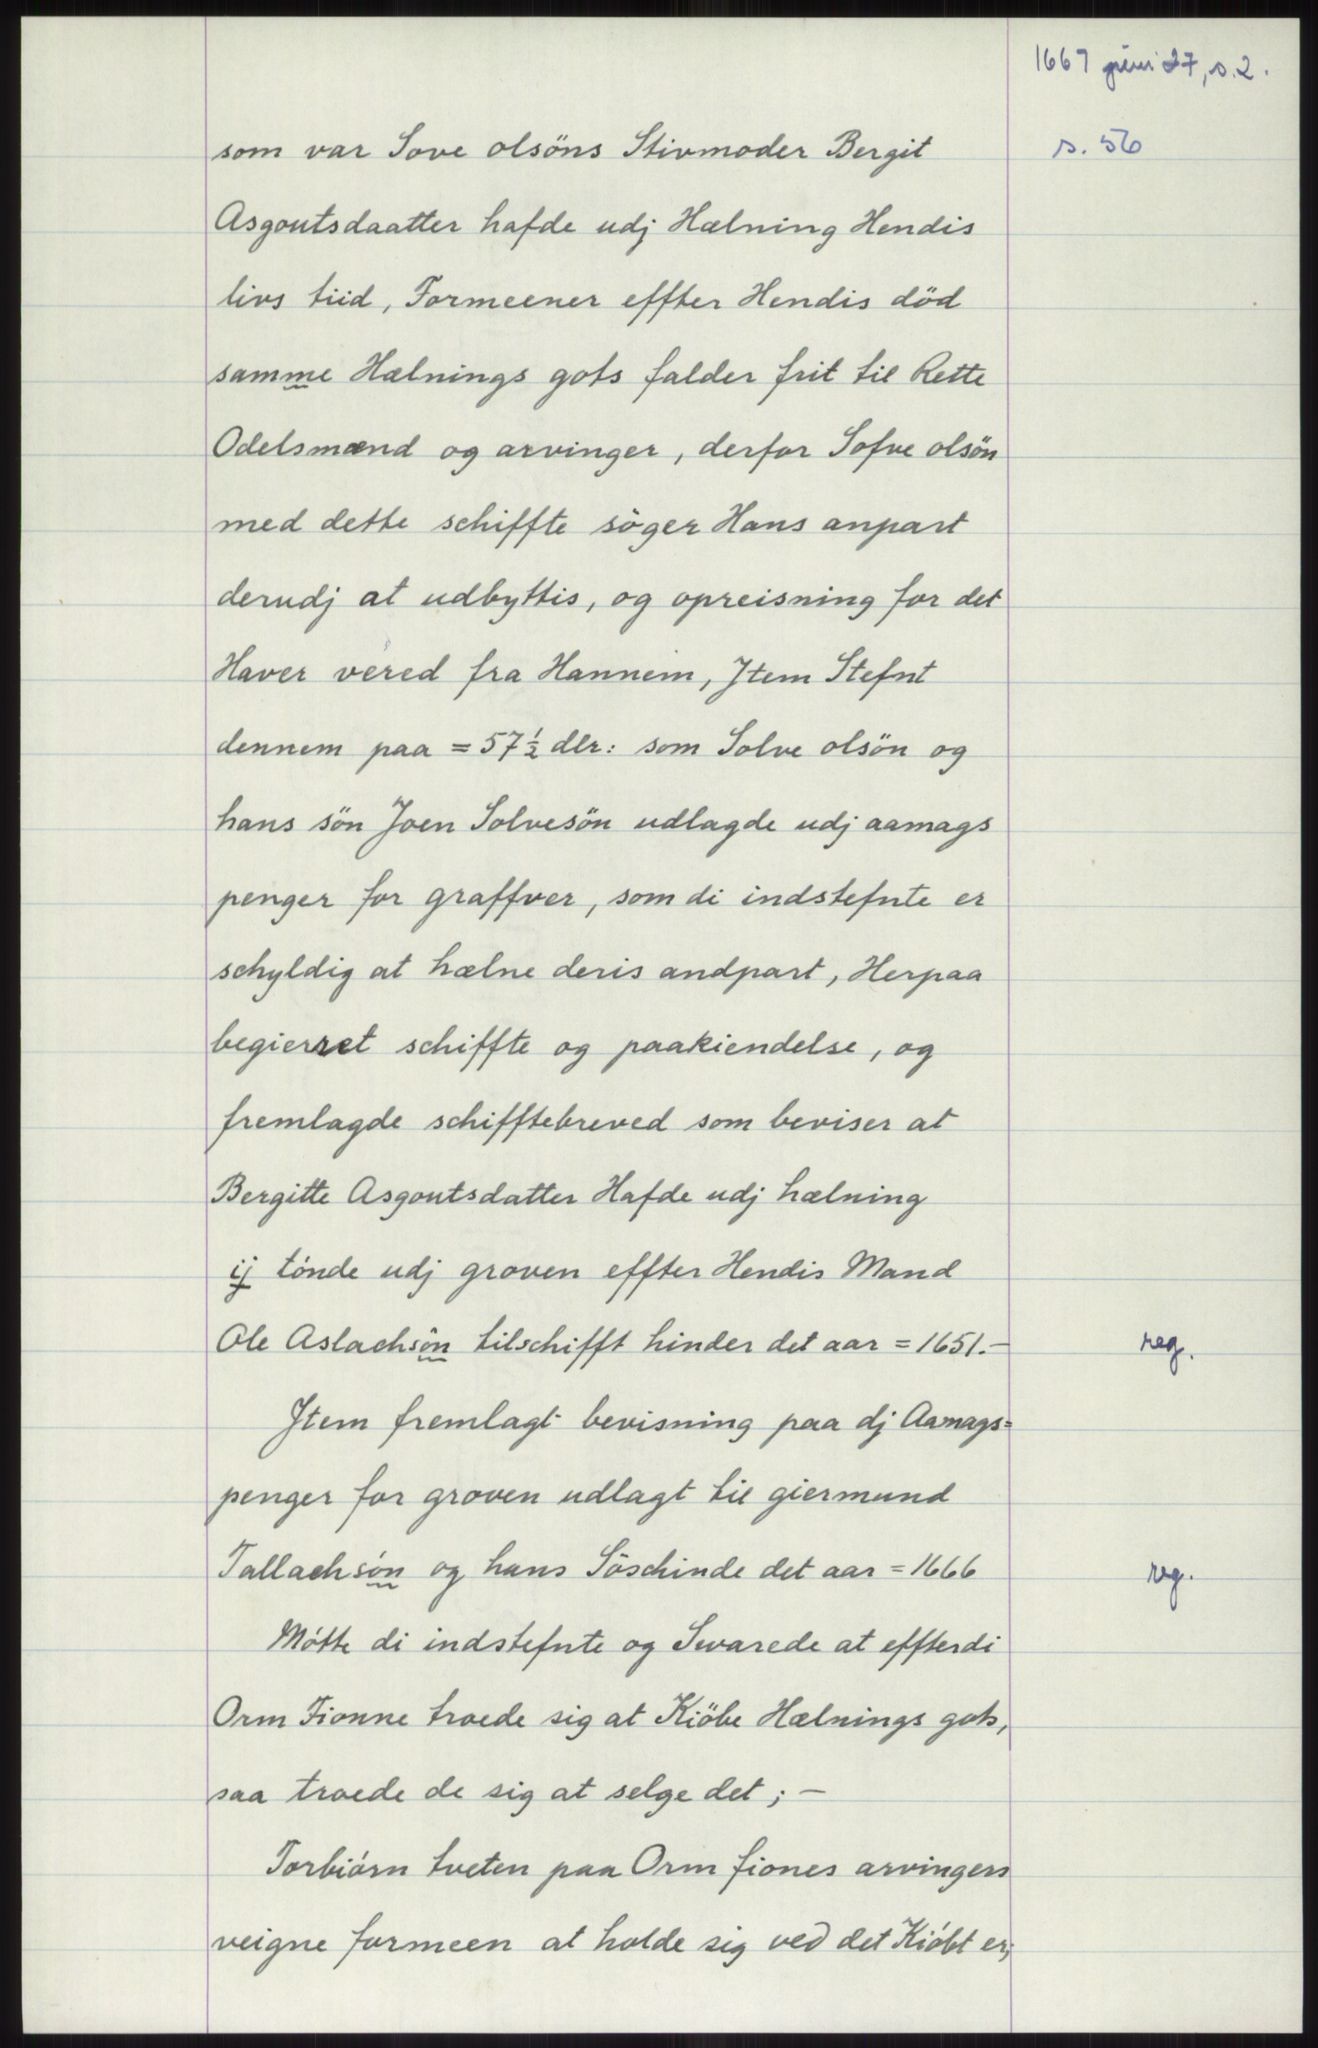 1667 juni 27, s. 2.
s. 56
som var Sove olsöns Stivmoder Bergit
Asgoutsdaatter hafde udj Hælning Hendis
livs tiid, Formeener effter Hendis död
samme Hælnings gots falder frit til Rette
Odelsmænd og arvinger, derfor Sofve olsön
med dette schiffte söger Hans anpart
derudj at udbyttis, og opreisning for det
Haver vered fra Hannem, Jtem Stefnt
dennem paa = 57½ dlr: som Solve olsön og
hans sön Joen Solvesön udlagde udj aamags
penger for graffver, som di indstefnte er
schyldig at hælne deris andpart, Herpaa
begierret schiffte og paakiendelse, og
fremlagde schifftebreved som beviser at
Bergitte Asgoutsdatter Hafde udj hælning
ij tónde udj groven effter Hendis Mand
Ole Aslachsön tilschifft hinder det aar = 1651.-
reg.
Jtem fremlagt bevisning paa dj Aamags=
penger for groven udlagt til giermund
Tallachsón og hans Söschinde det aar = 1666
reg.
Mótte di indstefnte og Swarede at effterdi
Orm Fionne troede sig at Kiöbe Hælnings gots,
saa troede de sig at selge det; -
Torbiórn tveten paa Orm fiones arvingers
veigne formeen at holde sig ved det Kióbt er;